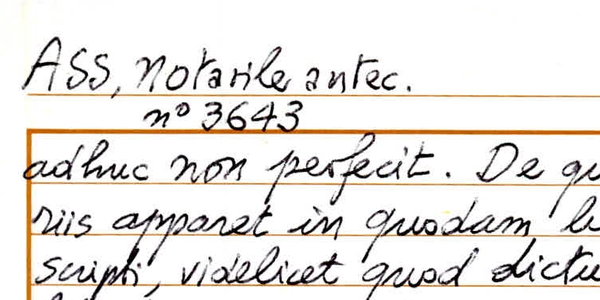 ASS, Notarile antec.
nº 3643
adhuc non perfecit. De
riis apparet in quodam
scripti, videlicet quod